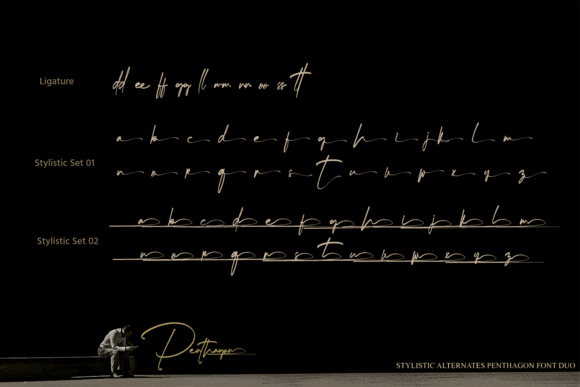 Ligature dd ee ff gg ll mm nn oo ss tt
Stylistic Set 01
a b c d e f g h i j k l m
n o p q r s t u v w x y z
Stylistic Set 02
a b c d e f g h i j k l m
n o p q r s t u v w x y z
Penthagon
STYLISTIC ALTERNATES PENTHAGON FONT DUO